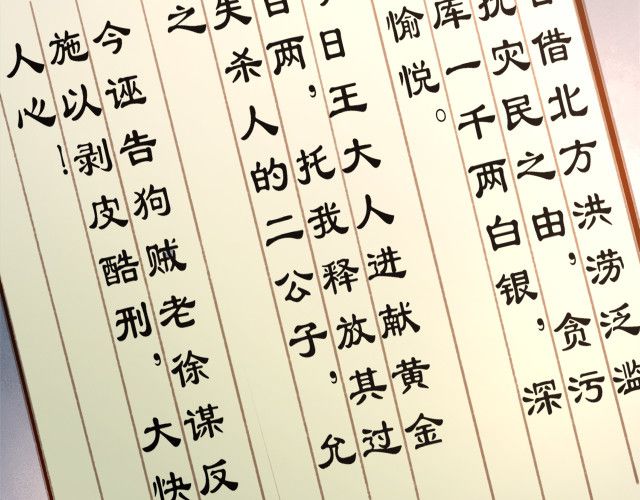 借北方洪涝泛滥
灾民之由，贪污
库一千两白银，深
愉悦。
日王大人进献黄金
两，托我释放其过
失杀人的二公子，允
之
今诬告狗贼老徐谋反
施以剥皮酷刑，大快
人心！